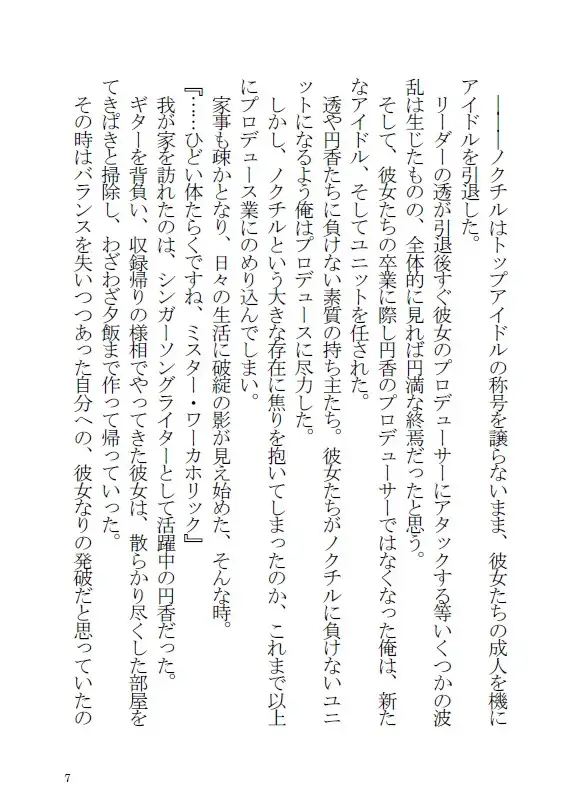 ―――ノクチルはトップアイドルの称号を譲らないまま、彼女たちの成人を機に
アイドルを引退した。
リーダーの透が引退後すぐ彼女のプロデューサーにアタックする等いくつかの波
乱は生じたものの、全体的に見れば円満な終焉だったと思う。
そして、彼女たちの卒業に際し円香のプロデューサーではなくなった俺は、新た
なアイドル、そしてユニットを任された。
透や円香たちに負けない素質の持ち主たち。彼女たちがノクチルに負けないユニ
ットになるよう俺はプロデュースに尽力した。
しかし、ノクチルという大きな存在に焦りを抱いてしまったのか、これまで以上
にプロデュース業にのめり込んでしまい。
家事も疎かとなり、日々の生活に破綻の影が見え始めた、そんな時。
『……ひどい体たらくですね、ミスター・ワーカホリック』
我が家を訪れたのは、シンガーソングライターとして活躍中の円香だった。
ギターを背負い、収録帰りの様相でやってきた彼女は、散らかり尽くした部屋を
てきぱきと掃除し、わざわざ夕飯まで作って帰っていった。
その時はバランスを失いつつあった自分への、彼女なりの発破だと思っていたの
7